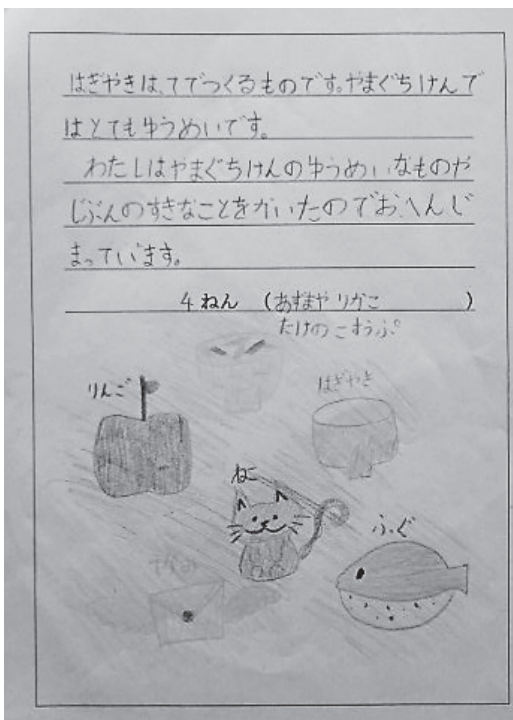 はぎやきは、てでつくるものです。やまぐちけんで
はとてもゆうめいです。
わたしはやまぐちけんのゆうめいなものや
じぶんのすきなことをかいたのでおへんじ
まっています。
4ねん (あずまや りかこ )
たけのこすうぷ
りんご
はぎやき
ねこ
ふぐ
てがみ